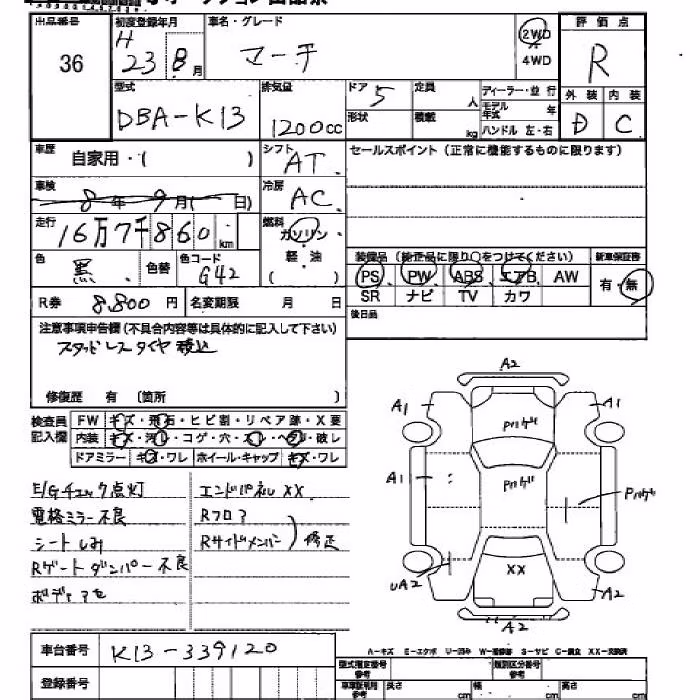 出品番号 初度登録年月 車名・グレード 評価点
36 H 23 8月 マーチ 2WD 4WD R
型式 排気量 ドア 定員 ディーラー・並行 外装 内装
DBA-K13 1200cc 5 人 モデル年式 年 D C
形状 積載 kg ハンドル 左・右
車歴 自家用・( ) シフト AT セールスポイント(正常に機能するものに限ります)
車検 8年9月( 日) 冷房 AC
走行 16万7千860km 燃料 ガソリン 軽・油 ( )
装備品(純正品に限り○をつけてください) 新車保証書
色 黒 色替 色コード G42 PS PW ABS エアB AW 有・無
SR ナビ TV カワ
R券 8,800円 名変期限 月 日 後日品
注意事項申告欄(不具合内容等は具体的に記入して下さい)
スタッドレスタイヤ積込
修復歴 有 〔箇所 〕
検査員記入欄 FW キズ・飛石・ヒビ割・リペア跡・X要
内装 キズ・汚レ・コゲ・穴・スレ・ヘタリ・破レ
ドアミラー キズ・ワレ ホイール・キャップ キズ・ワレ
A2
A1 A1
Pハゲ
A1 Pハゲ Pハゲ
XX
UA2 A2
A2
E/Gチェック点灯 エンドパネル XX
電格ミラー不良 Rフロア
シートしみ Rサイドメンバー )修正
Rゲートダンパー不良
車台番号 K13-339120
A-キズ E-エクボ U-凹み W-補修跡 S-サビ C-腐食 XX-交換済
登録番号
型式指定番号 参考 類別区分番号 参考
車車証明用 参考 長さ cm 幅 cm 高さ cm